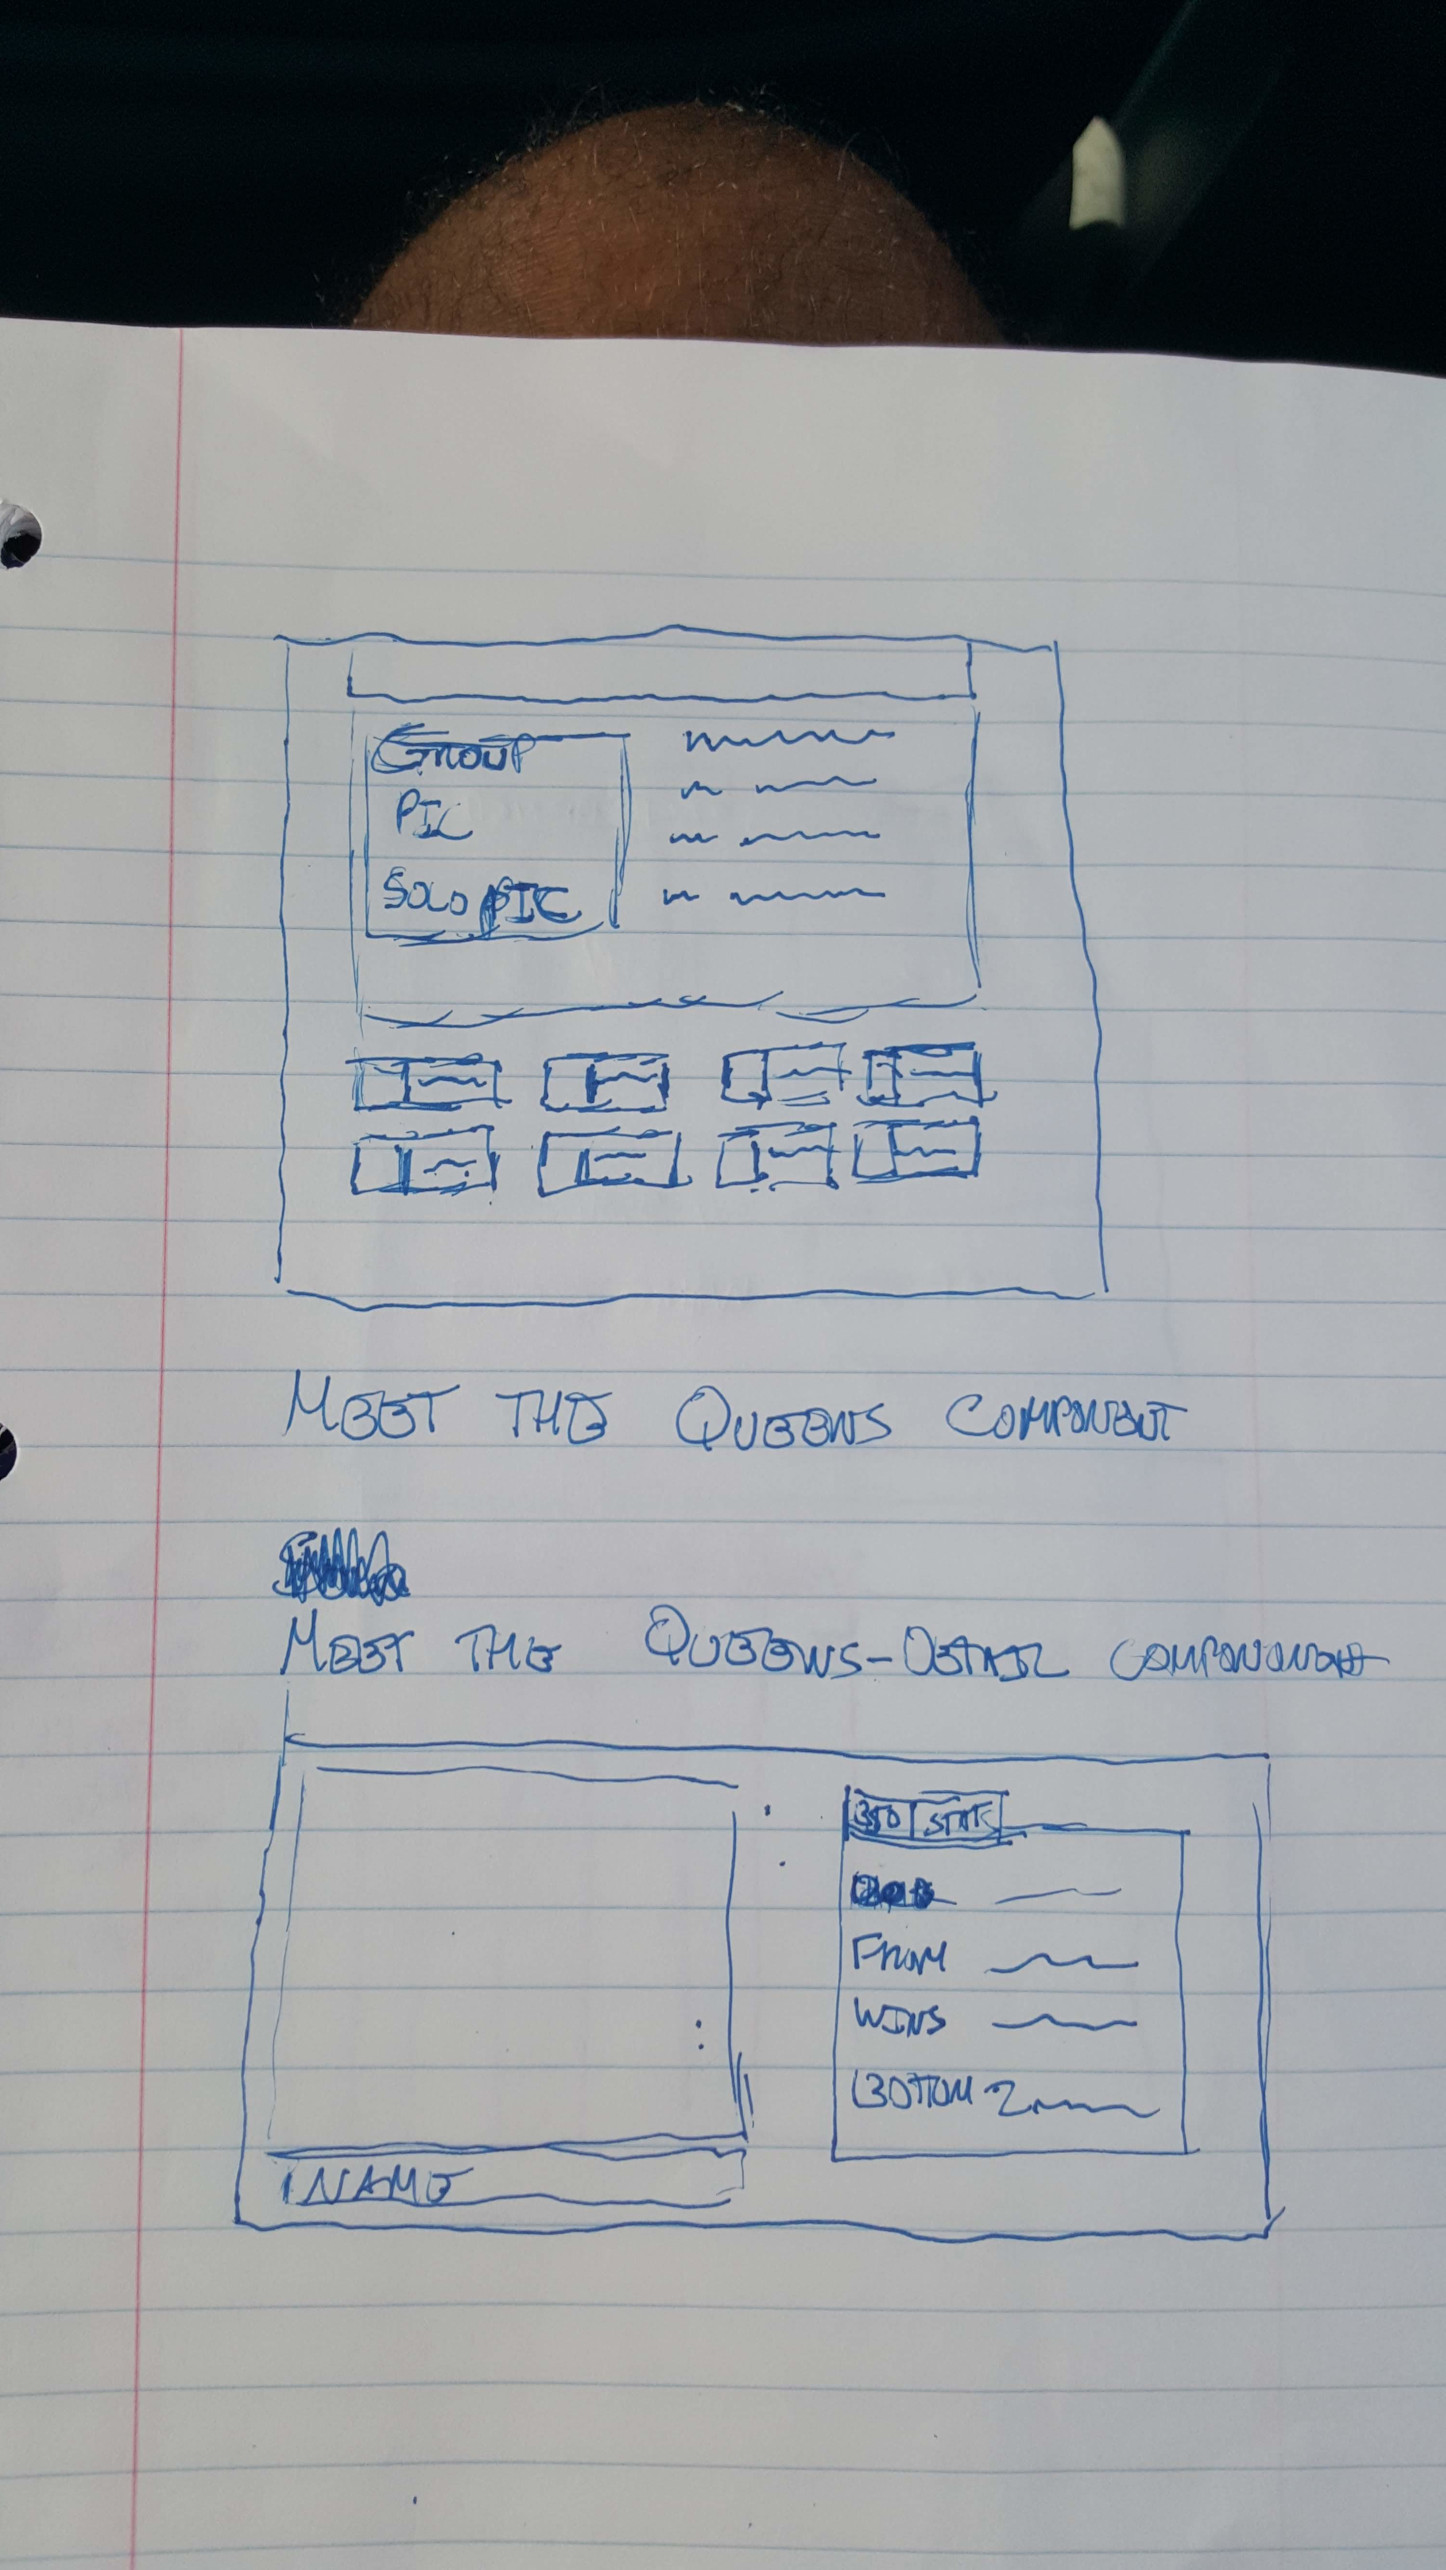 GROUP
PIC
SOLO PIC
MEET THE QUEENS COMPONENT
MEET THE QUEENS-DETAIL
BIO STATS
FROM
WINS
BOTTOM 2
NAME